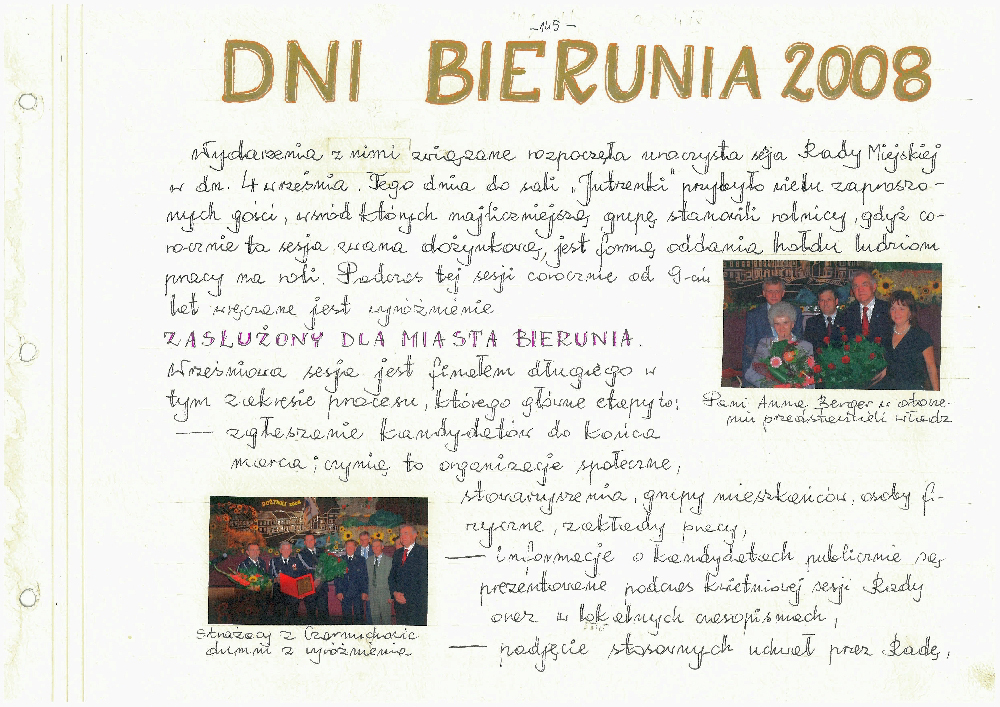 - 145 -
DNI BIERUNIA 2008
Wydarzenia z nimi związane rozpoczęła uroczysta sesja Rady Miejskiej
w dn. 4 września. Tego dnia do sali „Jutrzenki" przybyło wielu zaproszo-
nych gości, wśród których najliczniejszą grupę stanowili rolnicy, gdyż co-
rocznie ta sesja zwana dożynkową, jest formą oddania hołdu ludziom
pracy na roli. Podczas tej sesji corocznie od 9-ciu
lat wręczane jest wyróżnienie
ZASŁUŻONY DLA MIASTA BIERUNIA.
Wrześniowa sesja jest finałem długiego w
tym zakresie procesu, którego główne etapy to:
Pani Anna Berger w otocze-
niu przedstawicieli władz
— zgłaszanie kandydatów do końca
marca; czynią to organizacje społeczne,
stowarzyszenia, grupy mieszkańców, osoby fi-
zyczne, zakłady pracy,
— informacje o kandydatach publicznie są
prezentowane podczas kwietniowej sesji Rady
oraz w lokalnych czasopismach,
— podjęcie stosownych uchwał przez Radę,
DOŻYNKI 2008
Strażacy z Czarnuchowic
dumni z wyróżnienia